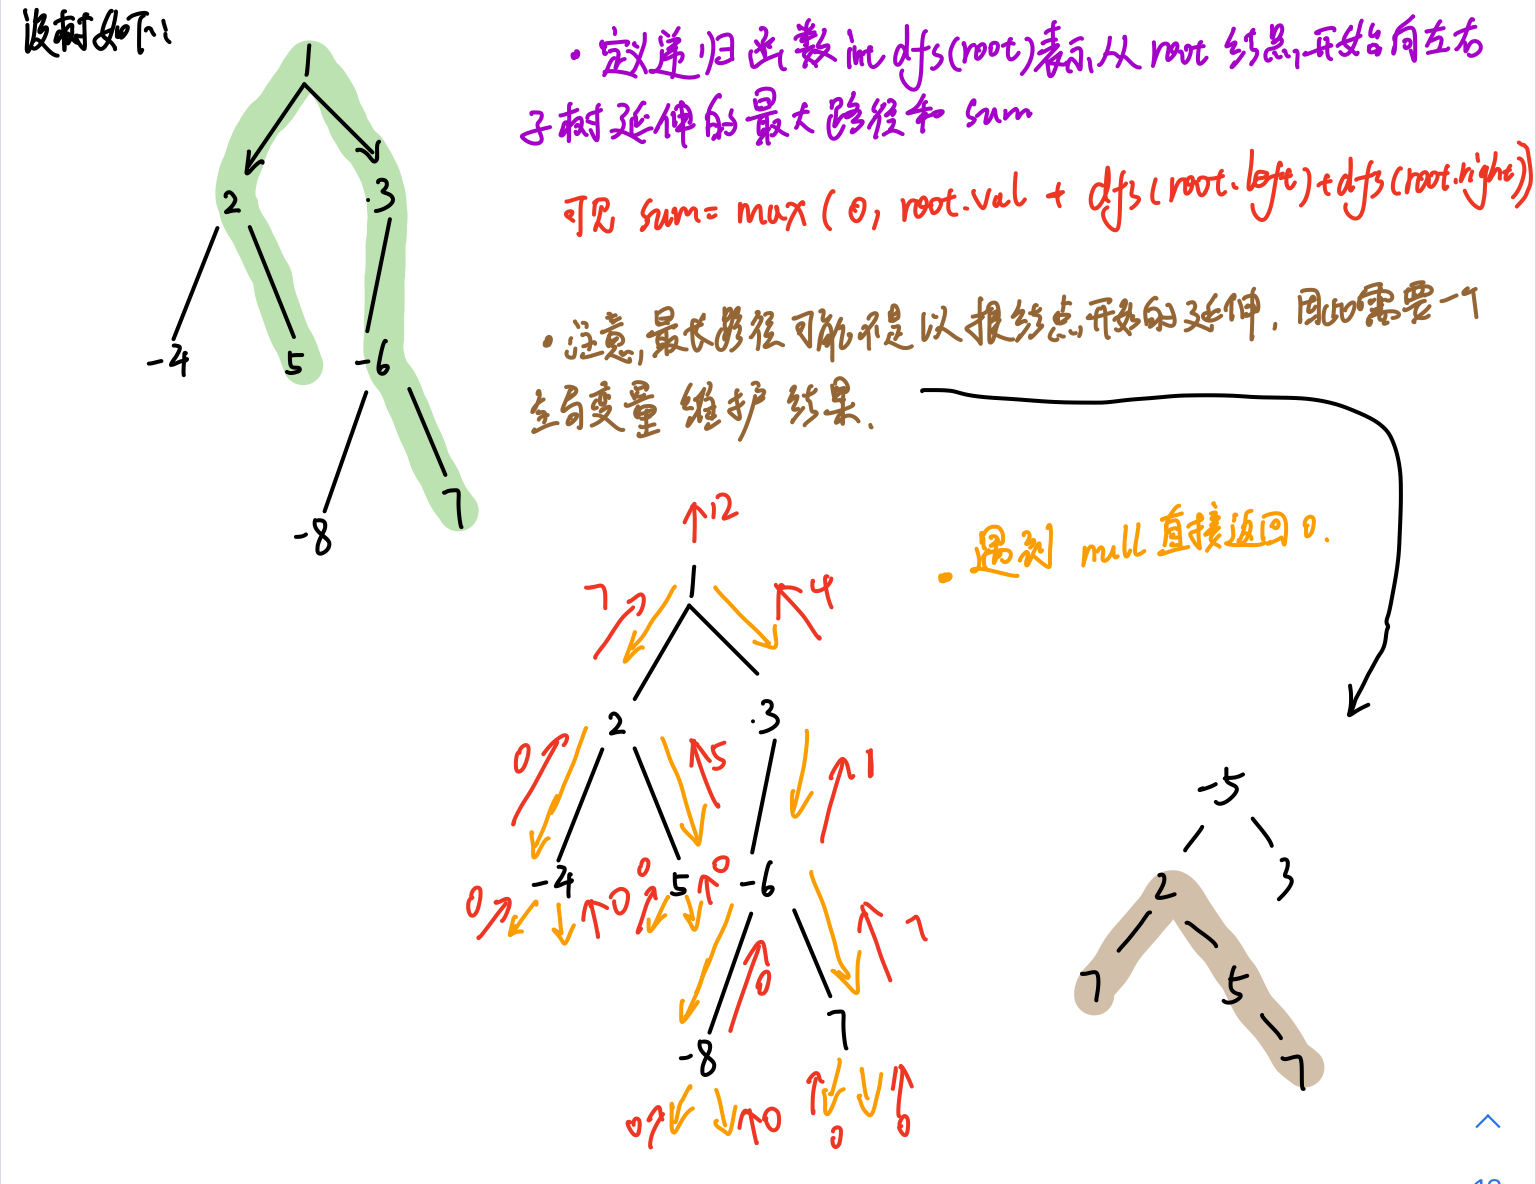 设树如下:
• 定义递归函数 int dfs(root)表示从 root 结点,开始向左右
子树延伸的最大路径和 sum
可见 sum= max (0, root.val + dfs(root.left)+dfs(root.right))
• 注意,最大路径可能不是以根结点开始的延伸. 因此需要一个
全局变量 维护 结果.
• 遇到 null 直接返回 0.
1
2 3
-4 5 -6
-8 7
↑12
1
7 4
2 3
0 5 1
-4 5 -6
0 0 0 0 7
0
-8 7
0 0 0 0
-5
2 3
7 5
7